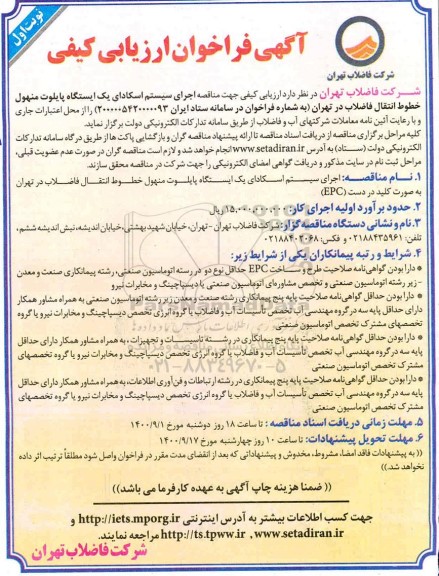 نوبت اول
آگهی فراخوان ارزیابی کیفی
شرکت فاضلاب تهران
شرکت فاضلاب تهران در نظر دارد ارزیابی کیفی جهت مناقصه اجرای سیستم اسکادای یک ایستگاه پایلوت منهول
خطوط انتقال فاضلاب در تهران (به شماره فراخوان در سامانه ستاد ایران ۲۰۰۰۰۰۵۴۲۰۰۰۰۰۹۳) را از محل اعتبارات جاری
و با رعایت آئین نامه معاملات شرکتهای آب و فاضلاب از طریق سامانه تدارکات الکترونیکی دولت برگزار نماید.
کلیه مراحل برگزاری مناقصه از دریافت اسناد مناقصه تا ارائه پیشنهاد مناقصه گران و بازگشایی پاکت ها از طریق درگاه سامانه تدارکات
الکترونیکی دولت (ستاد) به آدرس www.setadiran.ir انجام خواهد شد و لازم است مناقصه گران در صورت عدم عضویت قبلی،
مراحل ثبت نام در سایت مذکور و دریافت گواهی امضای الکترونیکی را جهت شرکت در مناقصه محقق سازند.
۱. نام مناقصه: اجرای سیستم اسکادای یک ایستگاه پایلوت منهول خطوط انتقال فاضلاب در تهران
به صورت کلید در دست (EPC)
۲. حدود برآورد اولیه اجرای کار: ۱۵,۰۰۰,۰۰۰,۰۰۰ ریال
۳. نام و نشانی دستگاه مناقصه گزار: شرکت فاضلاب تهران - تهران، خیابان شهید بهشتی، خیابان اندیشه، نبش اندیشه ششم،
تلفن: ۰۲۱۸۸۴۳۵۹۶۱ و فکس: ۰۲۱۸۸۴۰۲۰۶۸
۴. شرایط و رتبه پیمانکاران یکی از شرایط زیر:
* دارا بودن گواهی نامه صلاحیت طرح و ساخت EPC حداقل نوع دو در رسته اتوماسیون صنعتی، رشته پیمانکاری صنعت و معدن
- زیر رشته اتوماسیون صنعتی و تخصص مشاوره‌ای اتوماسیون صنعتی یا دیسپاچینگ و مخابرات نیرو
* دارا بودن حداقل گواهی نامه صلاحیت پایه پنج پیمانکاری رشته صنعت و معدن زیر رشته اتوماسیون صنعتی به همراه مشاور همکار
دارای حداقل پایه سه در گروه مهندسی آب تخصص تأسیسات آب و فاضلاب یا گروه انرژی تخصص دیسپاچینگ و مخابرات نیرو یا گروه
تخصصهای مشترک تخصص اتوماسیون صنعتی
* دارا بودن حداقل گواهی نامه صلاحیت پایه پنج پیمانکاری در رشته تاسیسات و تجهیزات، به همراه مشاور همکار دارای حداقل
پایه سه در گروه مهندسی آب تخصص تأسیسات آب و فاضلاب یا گروه انرژی تخصص دیسپاچینگ و مخابرات نیرو یا گروه تخصصهای
مشترک تخصص اتوماسیون صنعتی
* دارا بودن حداقل گواهی نامه صلاحیت پایه پنج پیمانکاری در رشته ارتباطات و فن آوری اطلاعات، به همراه مشاور همکار دارای حداقل
پایه سه در گروه مهندسی آب تخصص تأسیسات آب و فاضلاب یا گروه انرژی تخصص دیسپاچینگ و مخابرات نیرو یا گروه تخصصهای
مشترک تخصص اتوماسیون صنعتی
۵. مهلت زمانی دریافت اسناد مناقصه: تا ساعت ۱۸ روز دوشنبه مورخ ۱۴۰۰/۹/۱
۶. مهلت تحویل پیشنهادات: تا ساعت ۱۰ روز چهارشنبه مورخ ۱۴۰۰/۹/۱۷
(( به پیشنهادات فاقد امضا، مشروط، مخدوش و پیشنهاداتی که بعد از انقضای مدت مقرر در فراخوان واصل شود مطلقاً ترتیب اثر داده
نخواهد شد.))
(( ضمنا هزینه چاپ آگهی به عهده کارفرما می باشد))
جهت کسب اطلاعات بیشتر به آدرس اینترنتی http://iets.mporg.ir و
http://ts.tpww.ir , www.setadiran.ir مراجعه نمایند.
شرکت فاضلاب تهران
۰۲۱-۸۸۳۴۹۶۷۰-۵